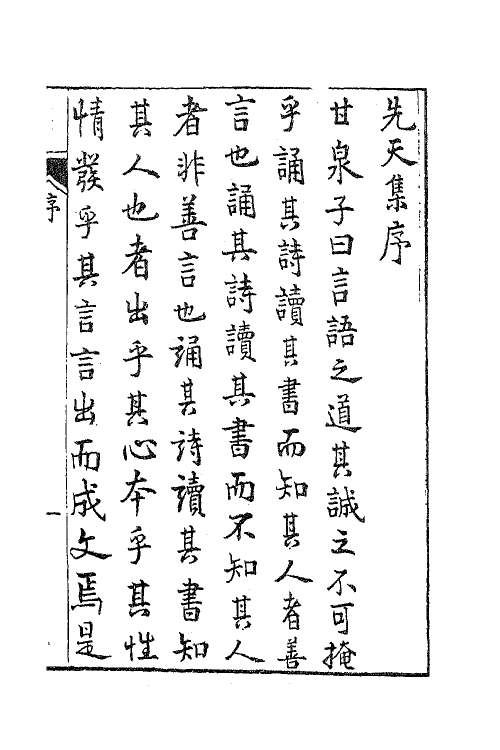 先天集序
甘泉子曰言語之道其誠之不可掩
乎誦其詩讀其書而知其人者善
言也誦其詩讀其書而不知其人
者非善言也誦其詩讀其書知
其人也者出乎其心本乎其性
情發乎其言言出而成文焉是
序
一